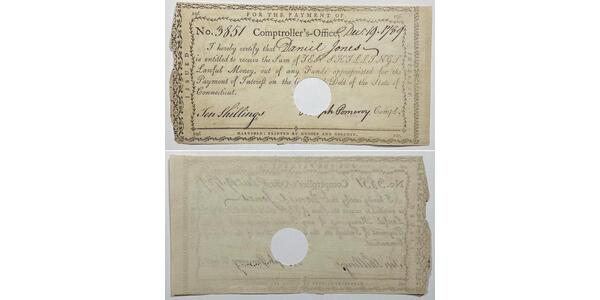 FOR THE PAYMENT OF
No. 3851 Comptroller's-Office, Dec. 19. 1789
I hereby certify that Daniel Jones
is entitled to receive the Sum of TEN SHILLINGS
Lawful Money, out of any Funds appropriated for the
Payment of Interest on the Debt of the State of
Connecticut.
Ten Shillings Pomeroy Compt.
HARTFORD: PRINTED BY HUDSON AND GOODWIN.